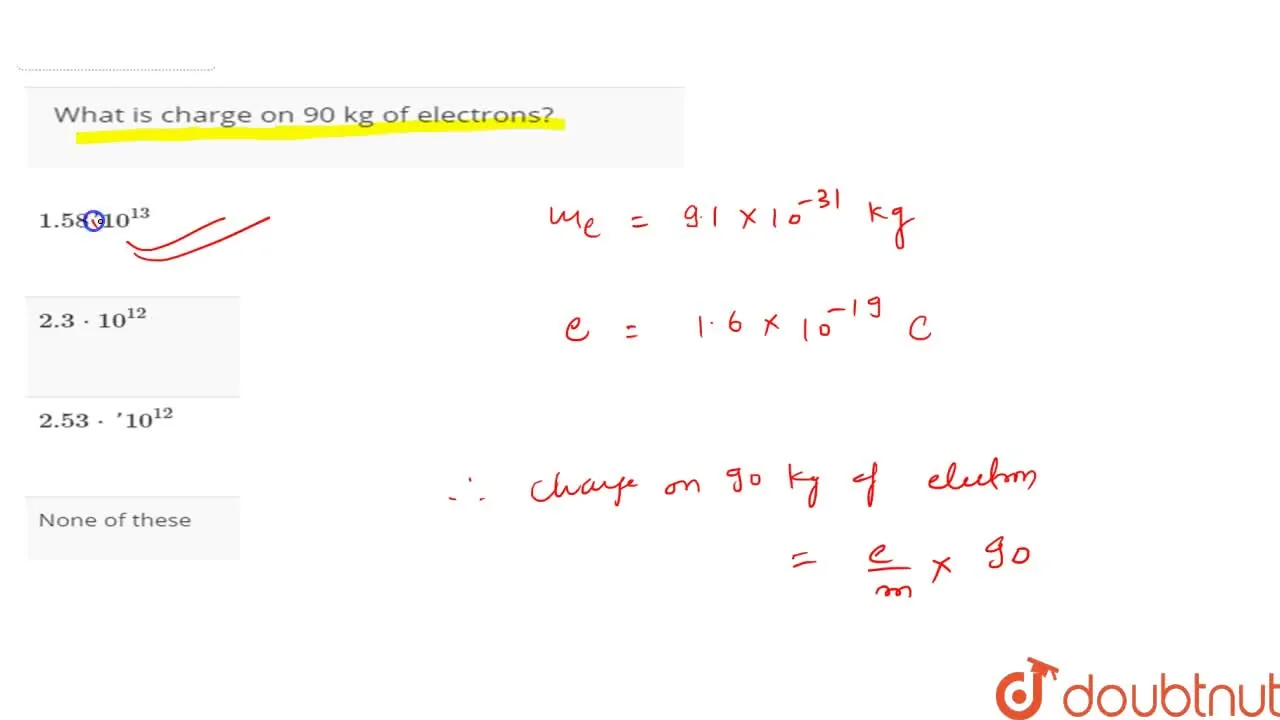 What is charge on 90 kg of electrons?
1.58 · 10^13
mₑ = 9.1 × 10^-31 kg
2.3 · 10^12
e = 1.6 × 10^-19 C
2.53 · ′10^12
∴ charge on 90 kg of electron
None of these
= e/m × 90
doubtnut